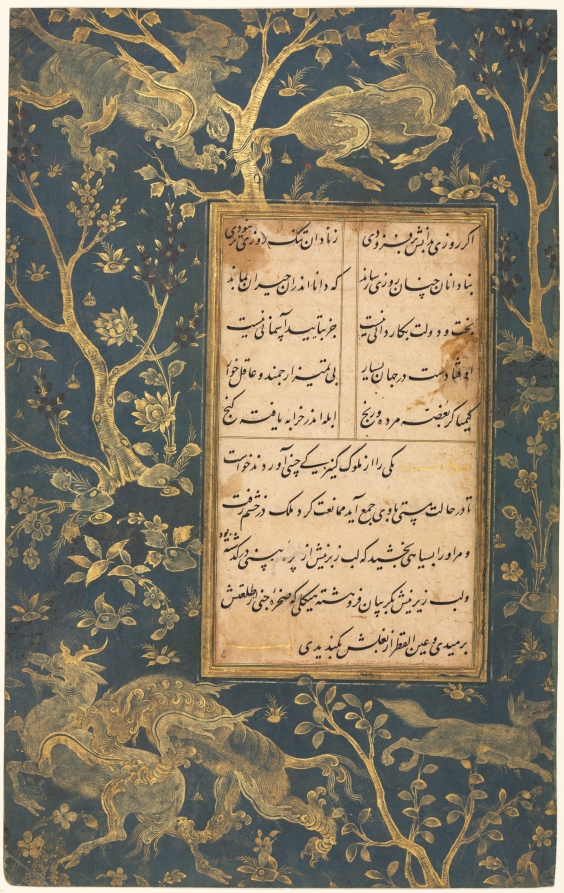 اگر روزی بدانش بر فزودی ز نادان تنگ روزی تر نبودی
بنادانان چنان روزی رساند که دانا اندران حیران بماند
بخت و دولت بکاردانی نیست جز بتایید آسمانی نیست
اوفتادست در جهان بسیار بی تمیز ارجمند و عاقل خوار
کیمیاگر بغصه مرده و رنج ابله اندر خرابه یافته گنج
یکی را از ملوک کنیزکی چینی آوردند خواست
تا در حالت مستی با وی جمع آید ممانعت کرد ملک در خشم رفت
و مر او را بسیاهی بخشید که لب زبرینش از پره بینی درگذشته بود
ولب زیرینش بگریبان فروهشته هیکلی که صخره جنی از طلعتش
برمیدی و عین القطر از بغلش بگندیدی